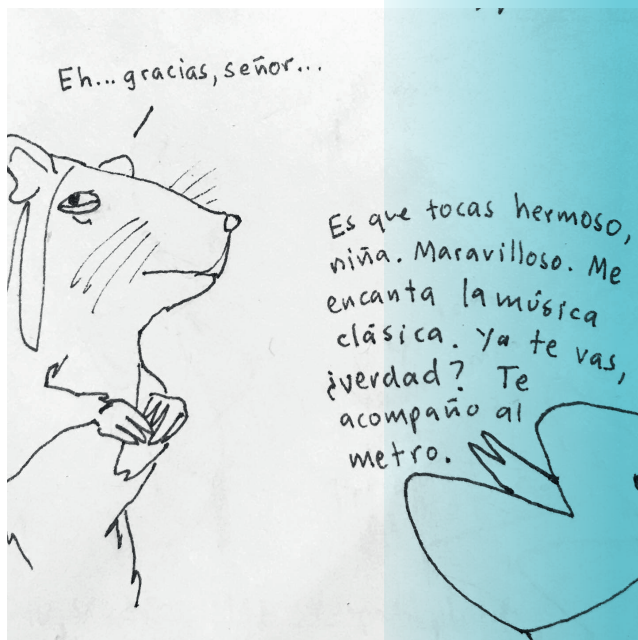 Eh... gracias, señor...
Es que tocas hermoso,
niña. Maravilloso. Me
encanta la música
clásica. Ya te vas,
¿verdad? Te
acompaño al
metro.